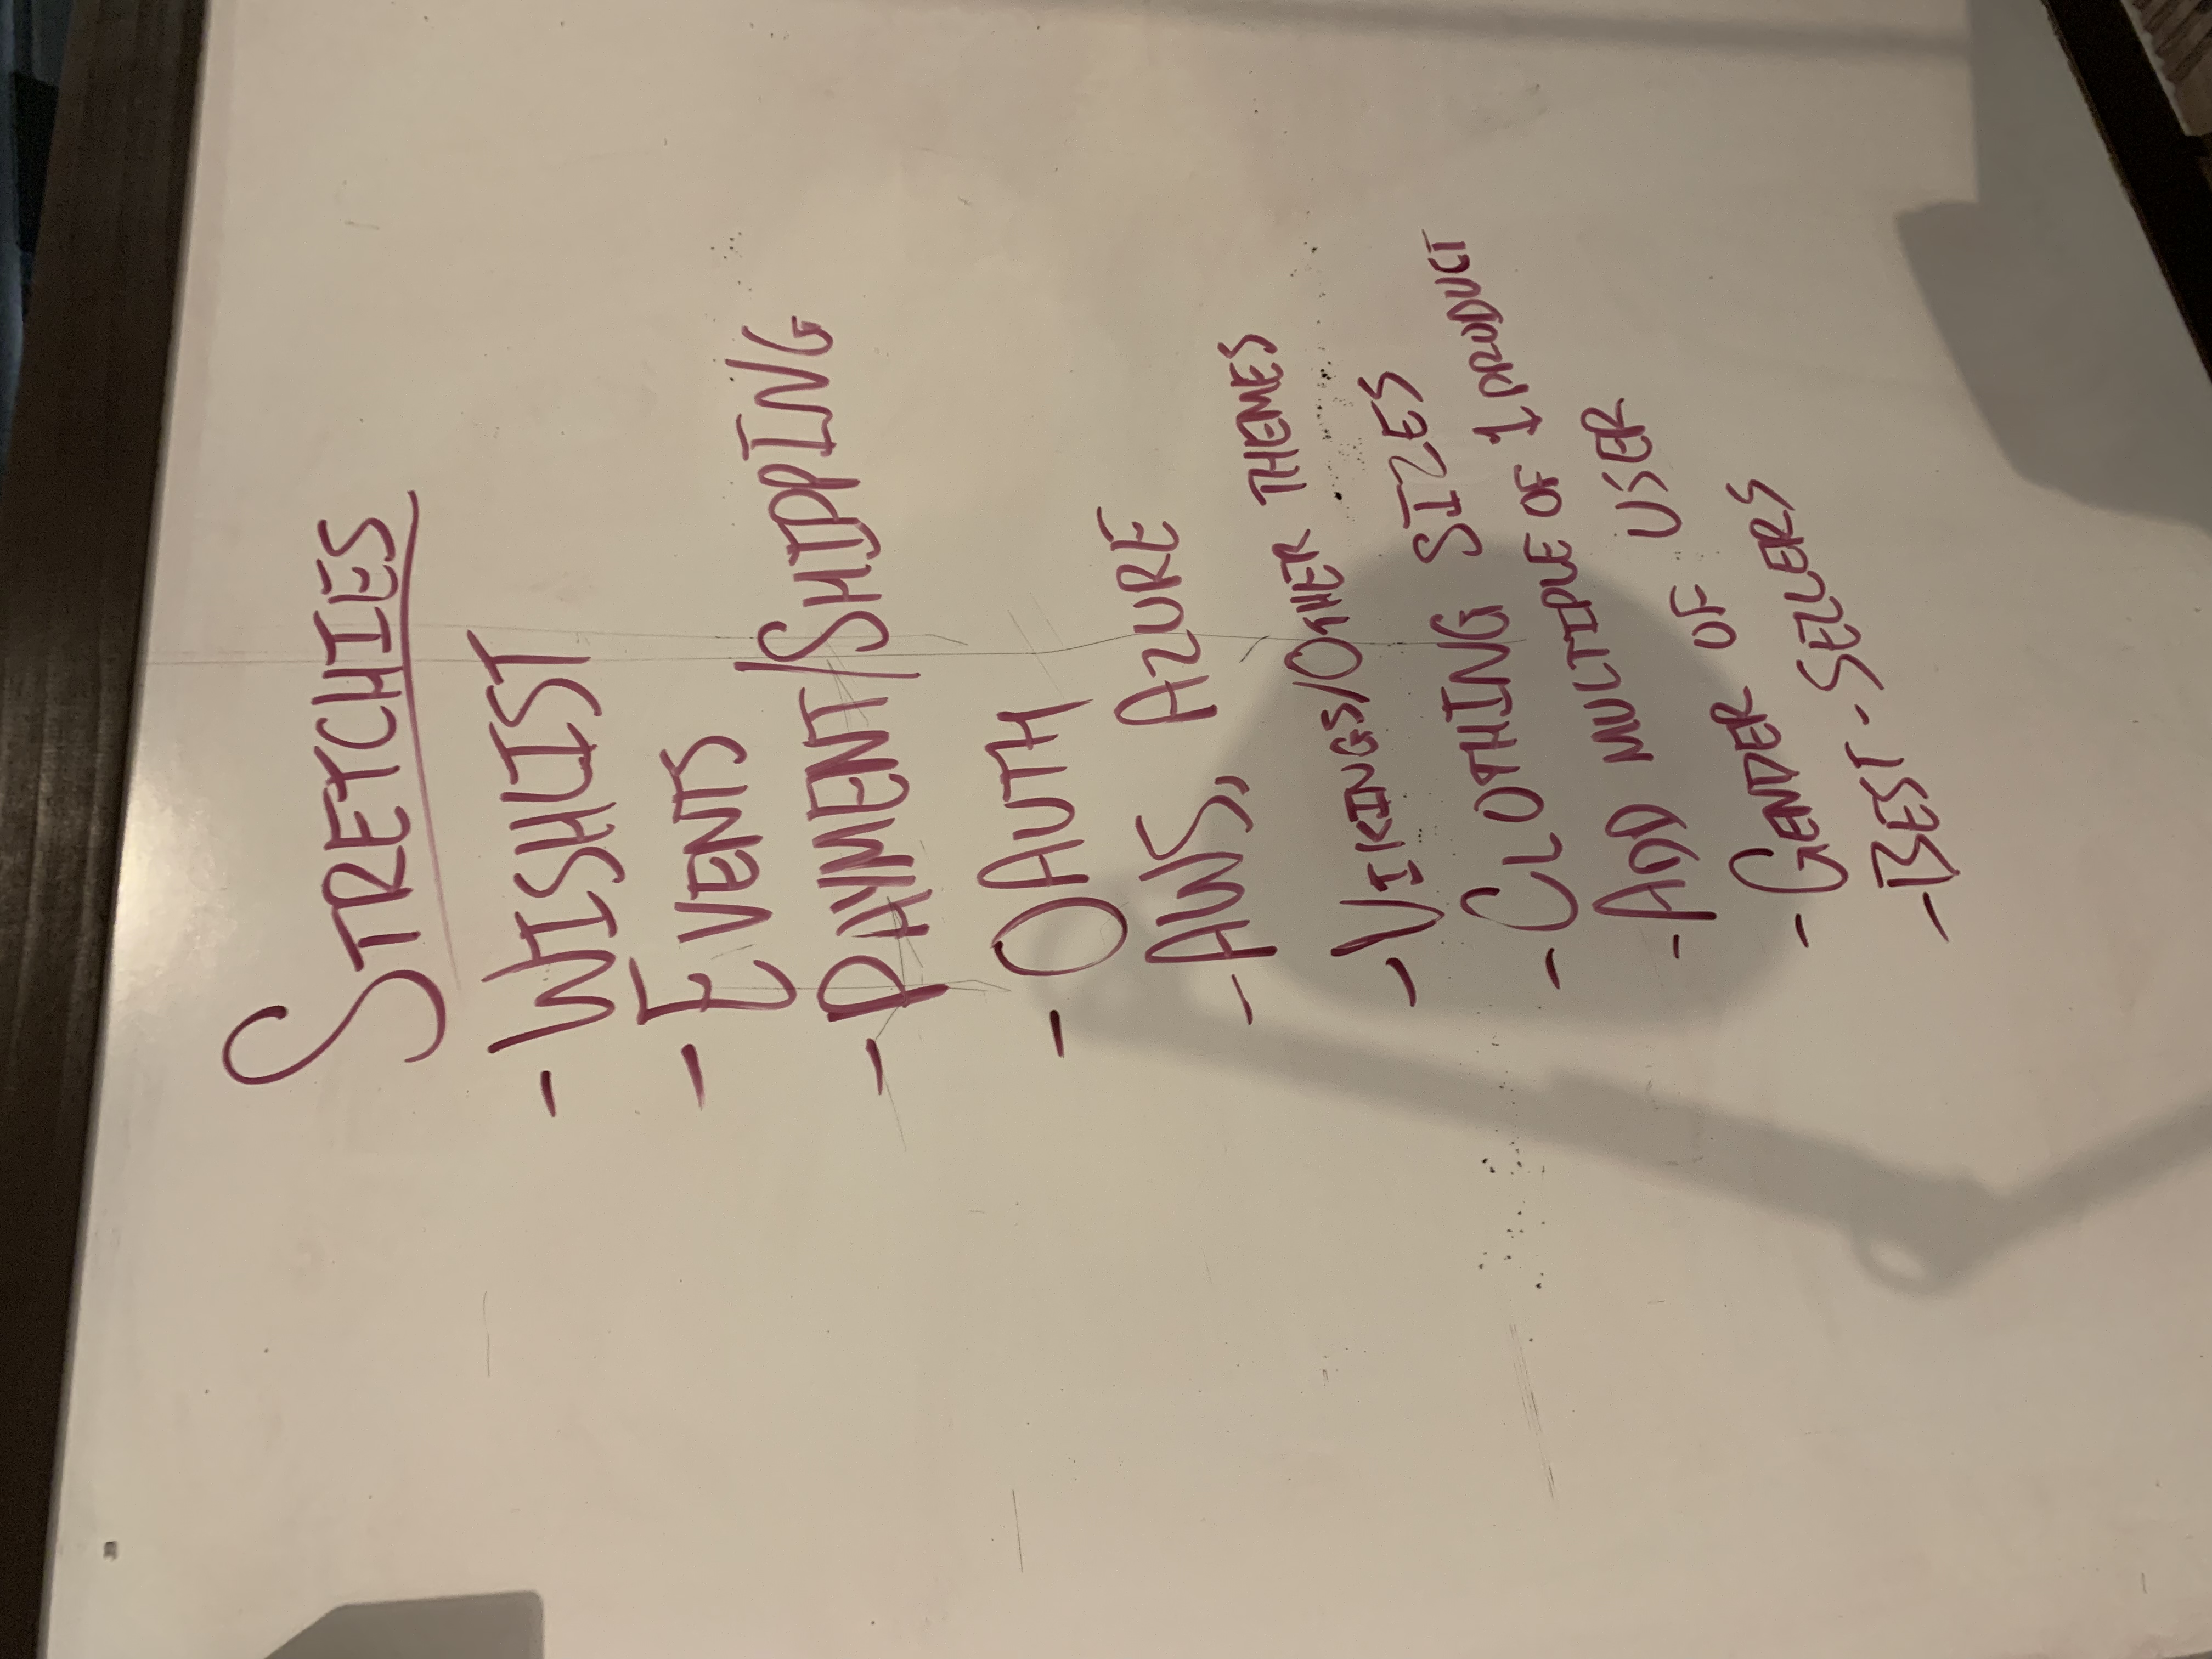 STRETCHIES
- WISHLIST
- EVENTS
- PAYMENT/SHIPPING
- OAUTH
- AWS, AZURE
- VIKINGS/OTHER THEMES
- CLOTHING SIZES
- ADD MULTIPLE OF 1 PRODUCT
- GENDER OF USER
- BEST-SELLERS